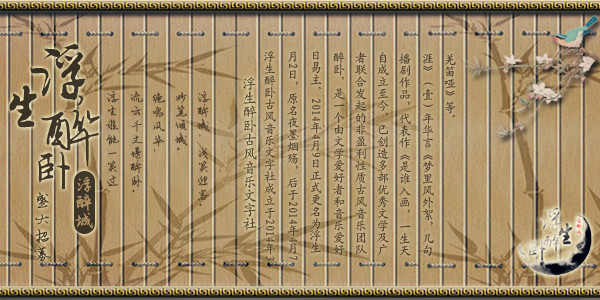 浮生醉卧
浮醉城
叁六招募
浮醉城，浅笑迎客，
妙笔倾城，
绝唱风华。
流云千丈博醉卧，
浮生谁能一笑过。
浮生醉卧古风音乐文字社
浮生醉卧古风音乐文字社成立于2014年3
月2日。原名夜墨烟殇，后于2014年4月7
日易主，2014年4月9日正式更名为浮生
醉卧，是一个由文学爱好者和音乐爱好
者联合发起的非盈利性质古风音乐团队
自成立至今，已创造多部优秀文学及广
播剧作品，代表作《是谁入画，一生天
涯》（壹）年华言《梦里风外絮，几句
羌笛哑》等。
浮生醉卧